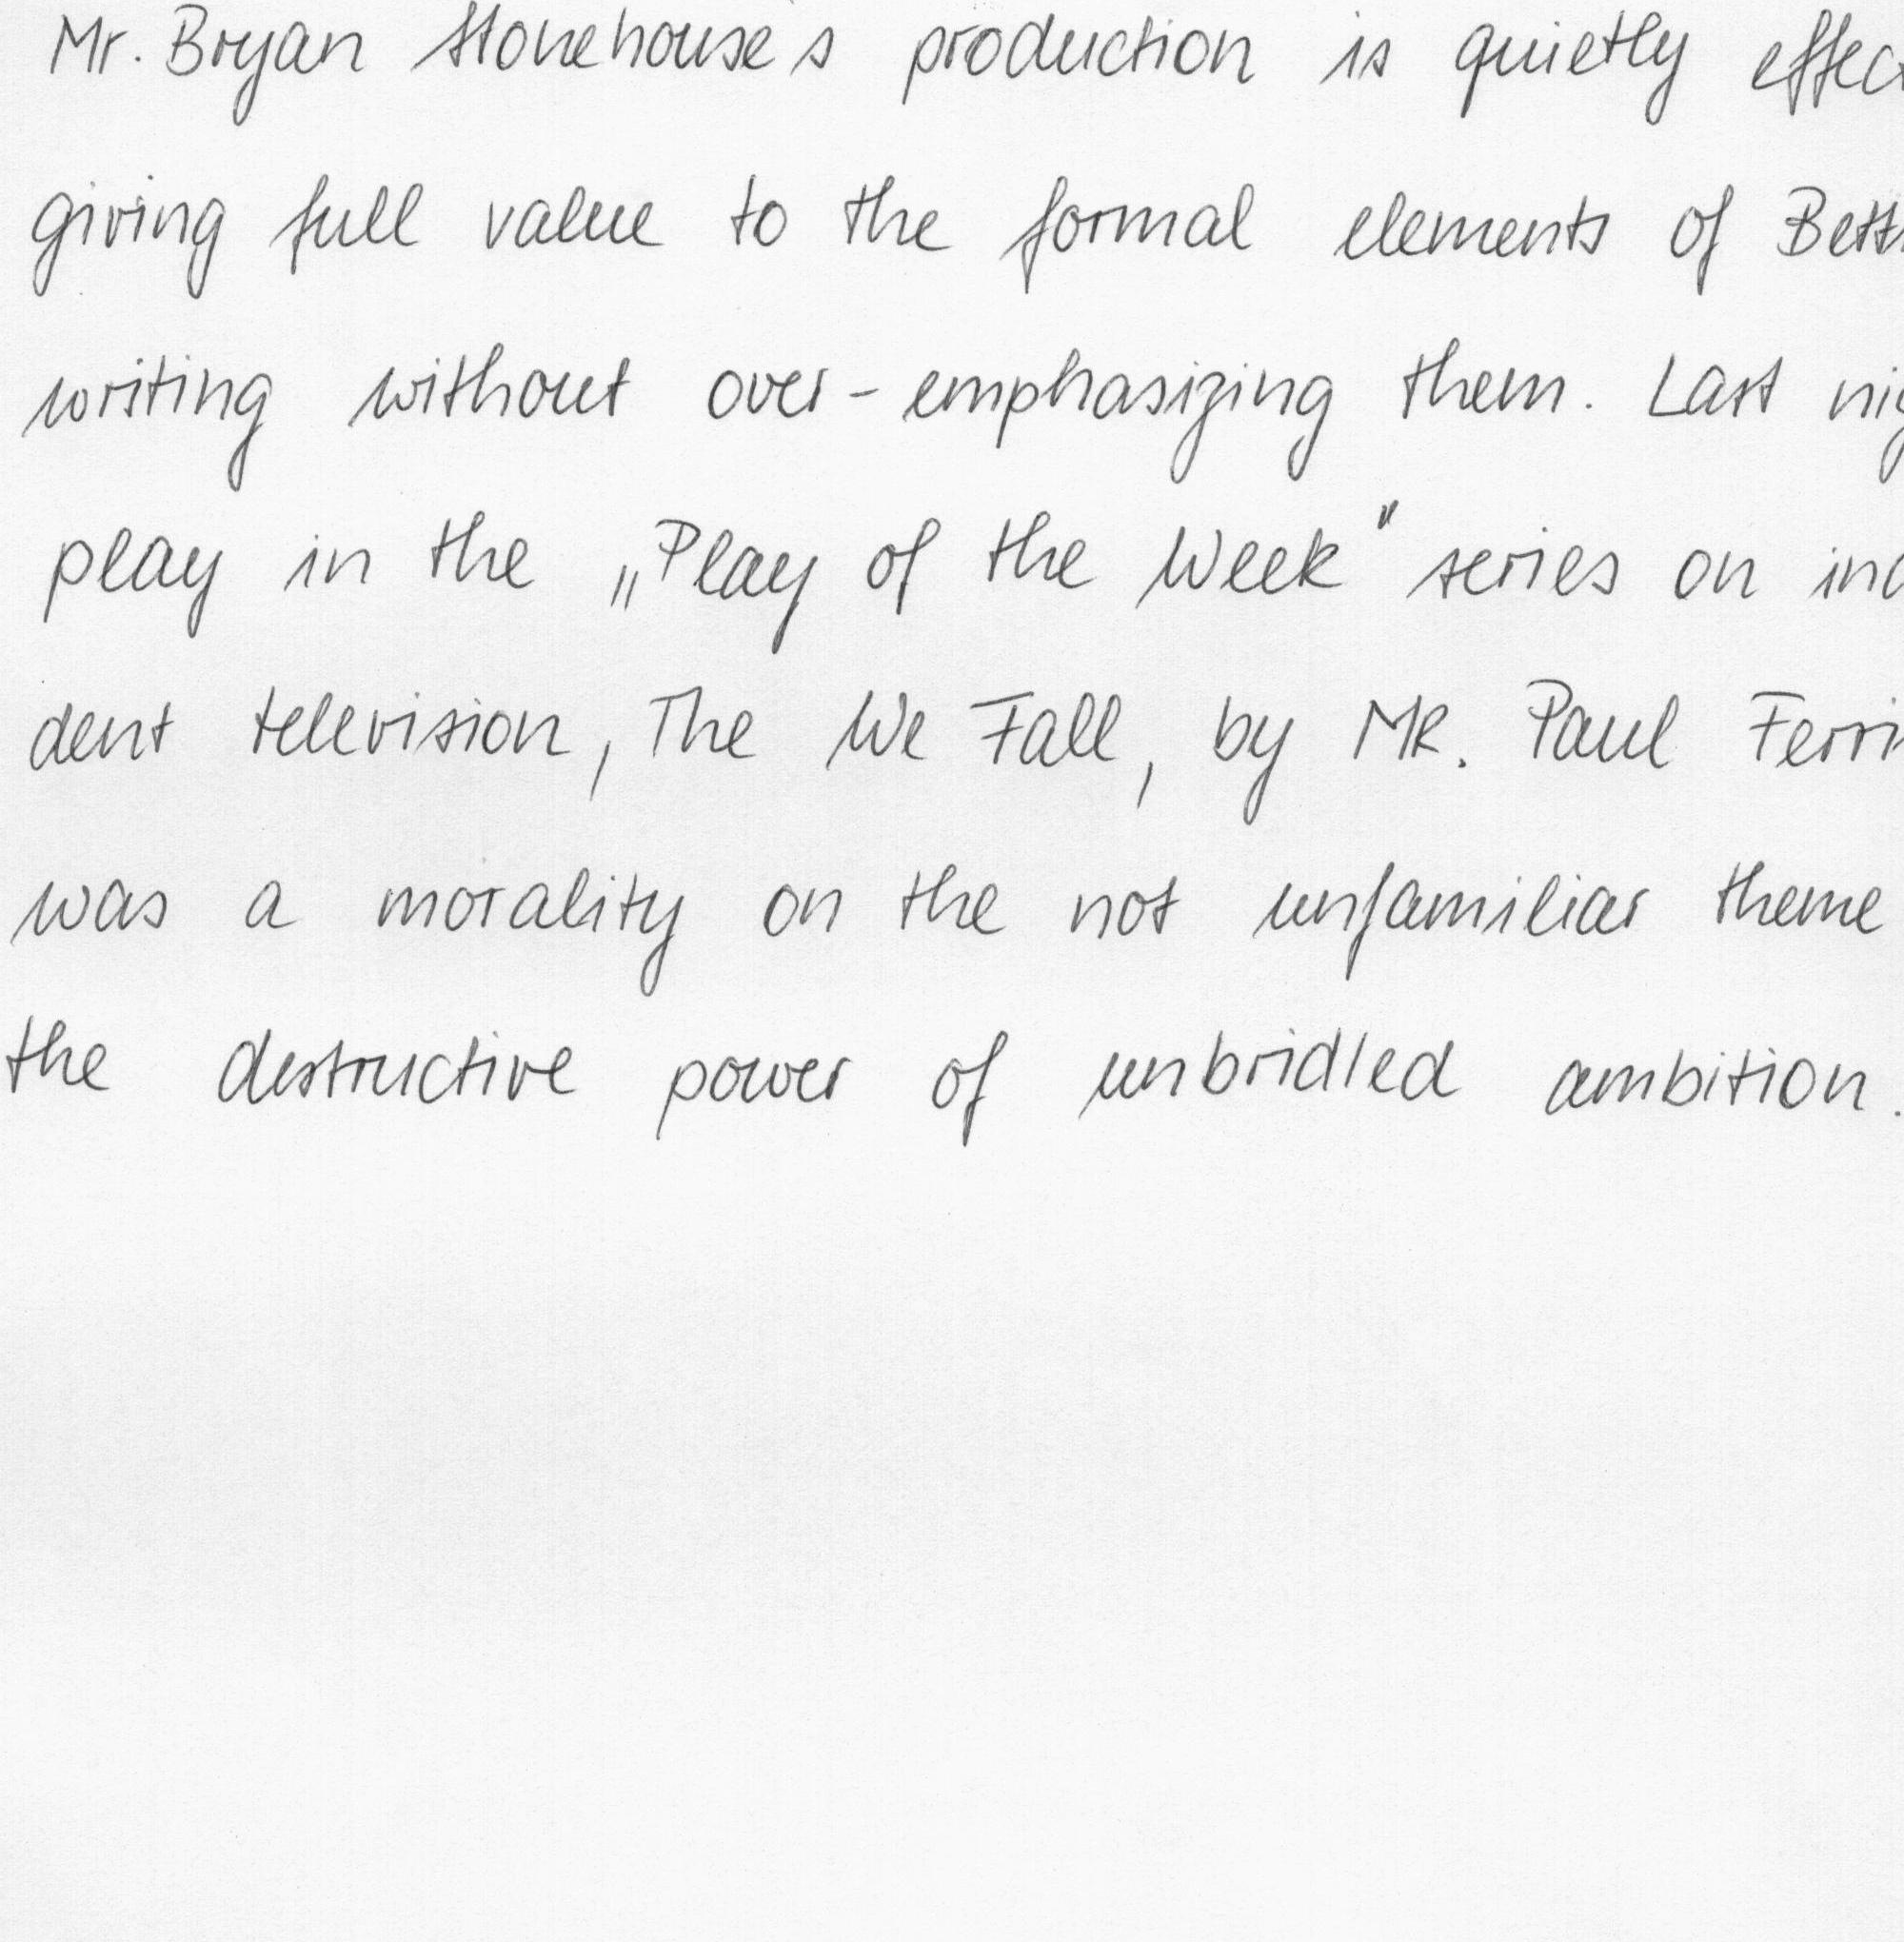 Mr. Bryan Stonehouse's production is quietly
giving full value to the formal elements of
writing without over-emphasizing them. Last
play in the „Play of the Week" series on
dent television, The We Fall, by MR. Paul
was a morality on the not unfamiliar theme
the destructive power of unbridled ambition.